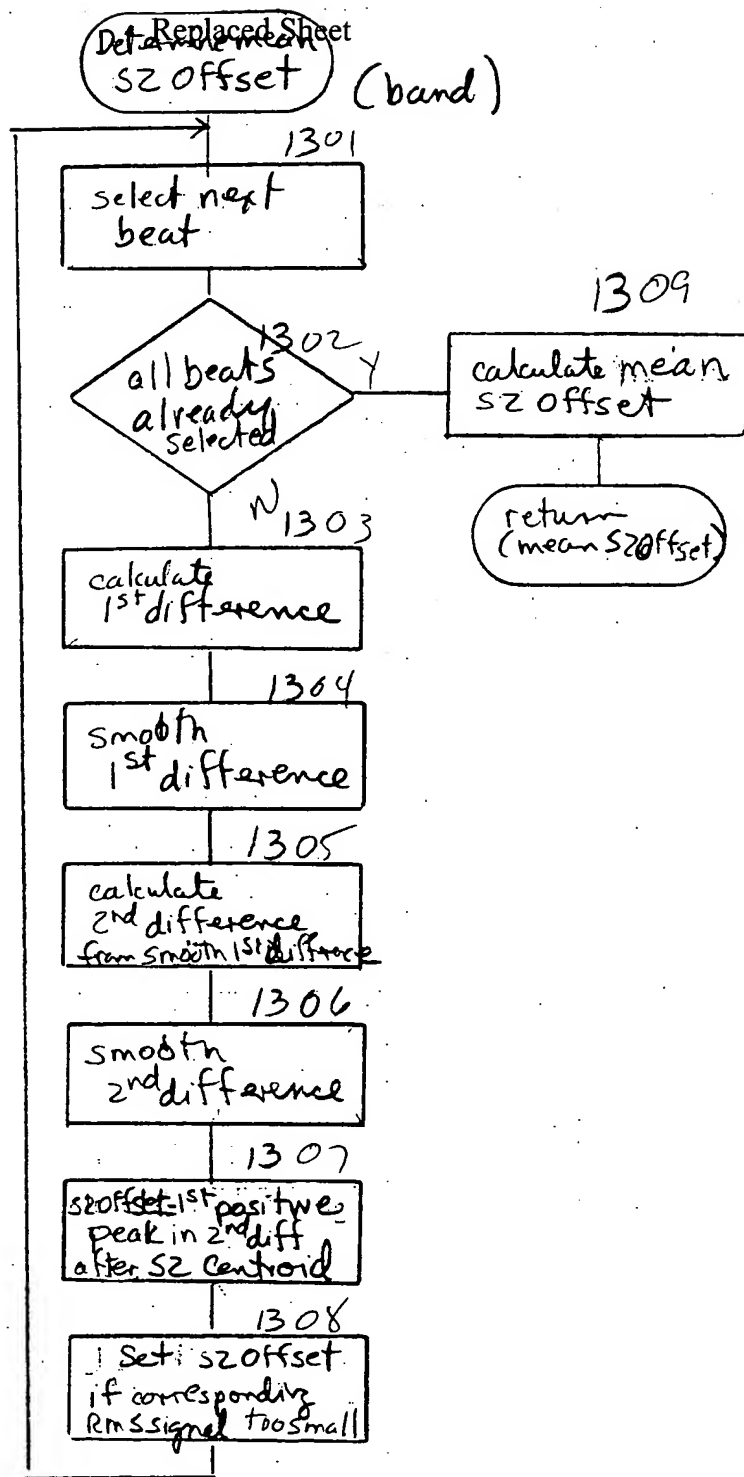 Replaced Sheet
Determine mean
S2 Offset
(band)
1301
select next
beat
1302
all beats
already
selected
Y
N
1309
calculate mean
S2 Offset
return
(mean S2Offset)
1303
calculate
1st difference
1304
smooth
1st difference
1305
calculate
2nd difference
from smooth 1st diffrace
1306
smooth
2nd difference
1307
S2Offset=1st positive
peak in 2nd diff
after S2 Centroid
1308
Set S2Offset
if corresponding
RMS signal too small